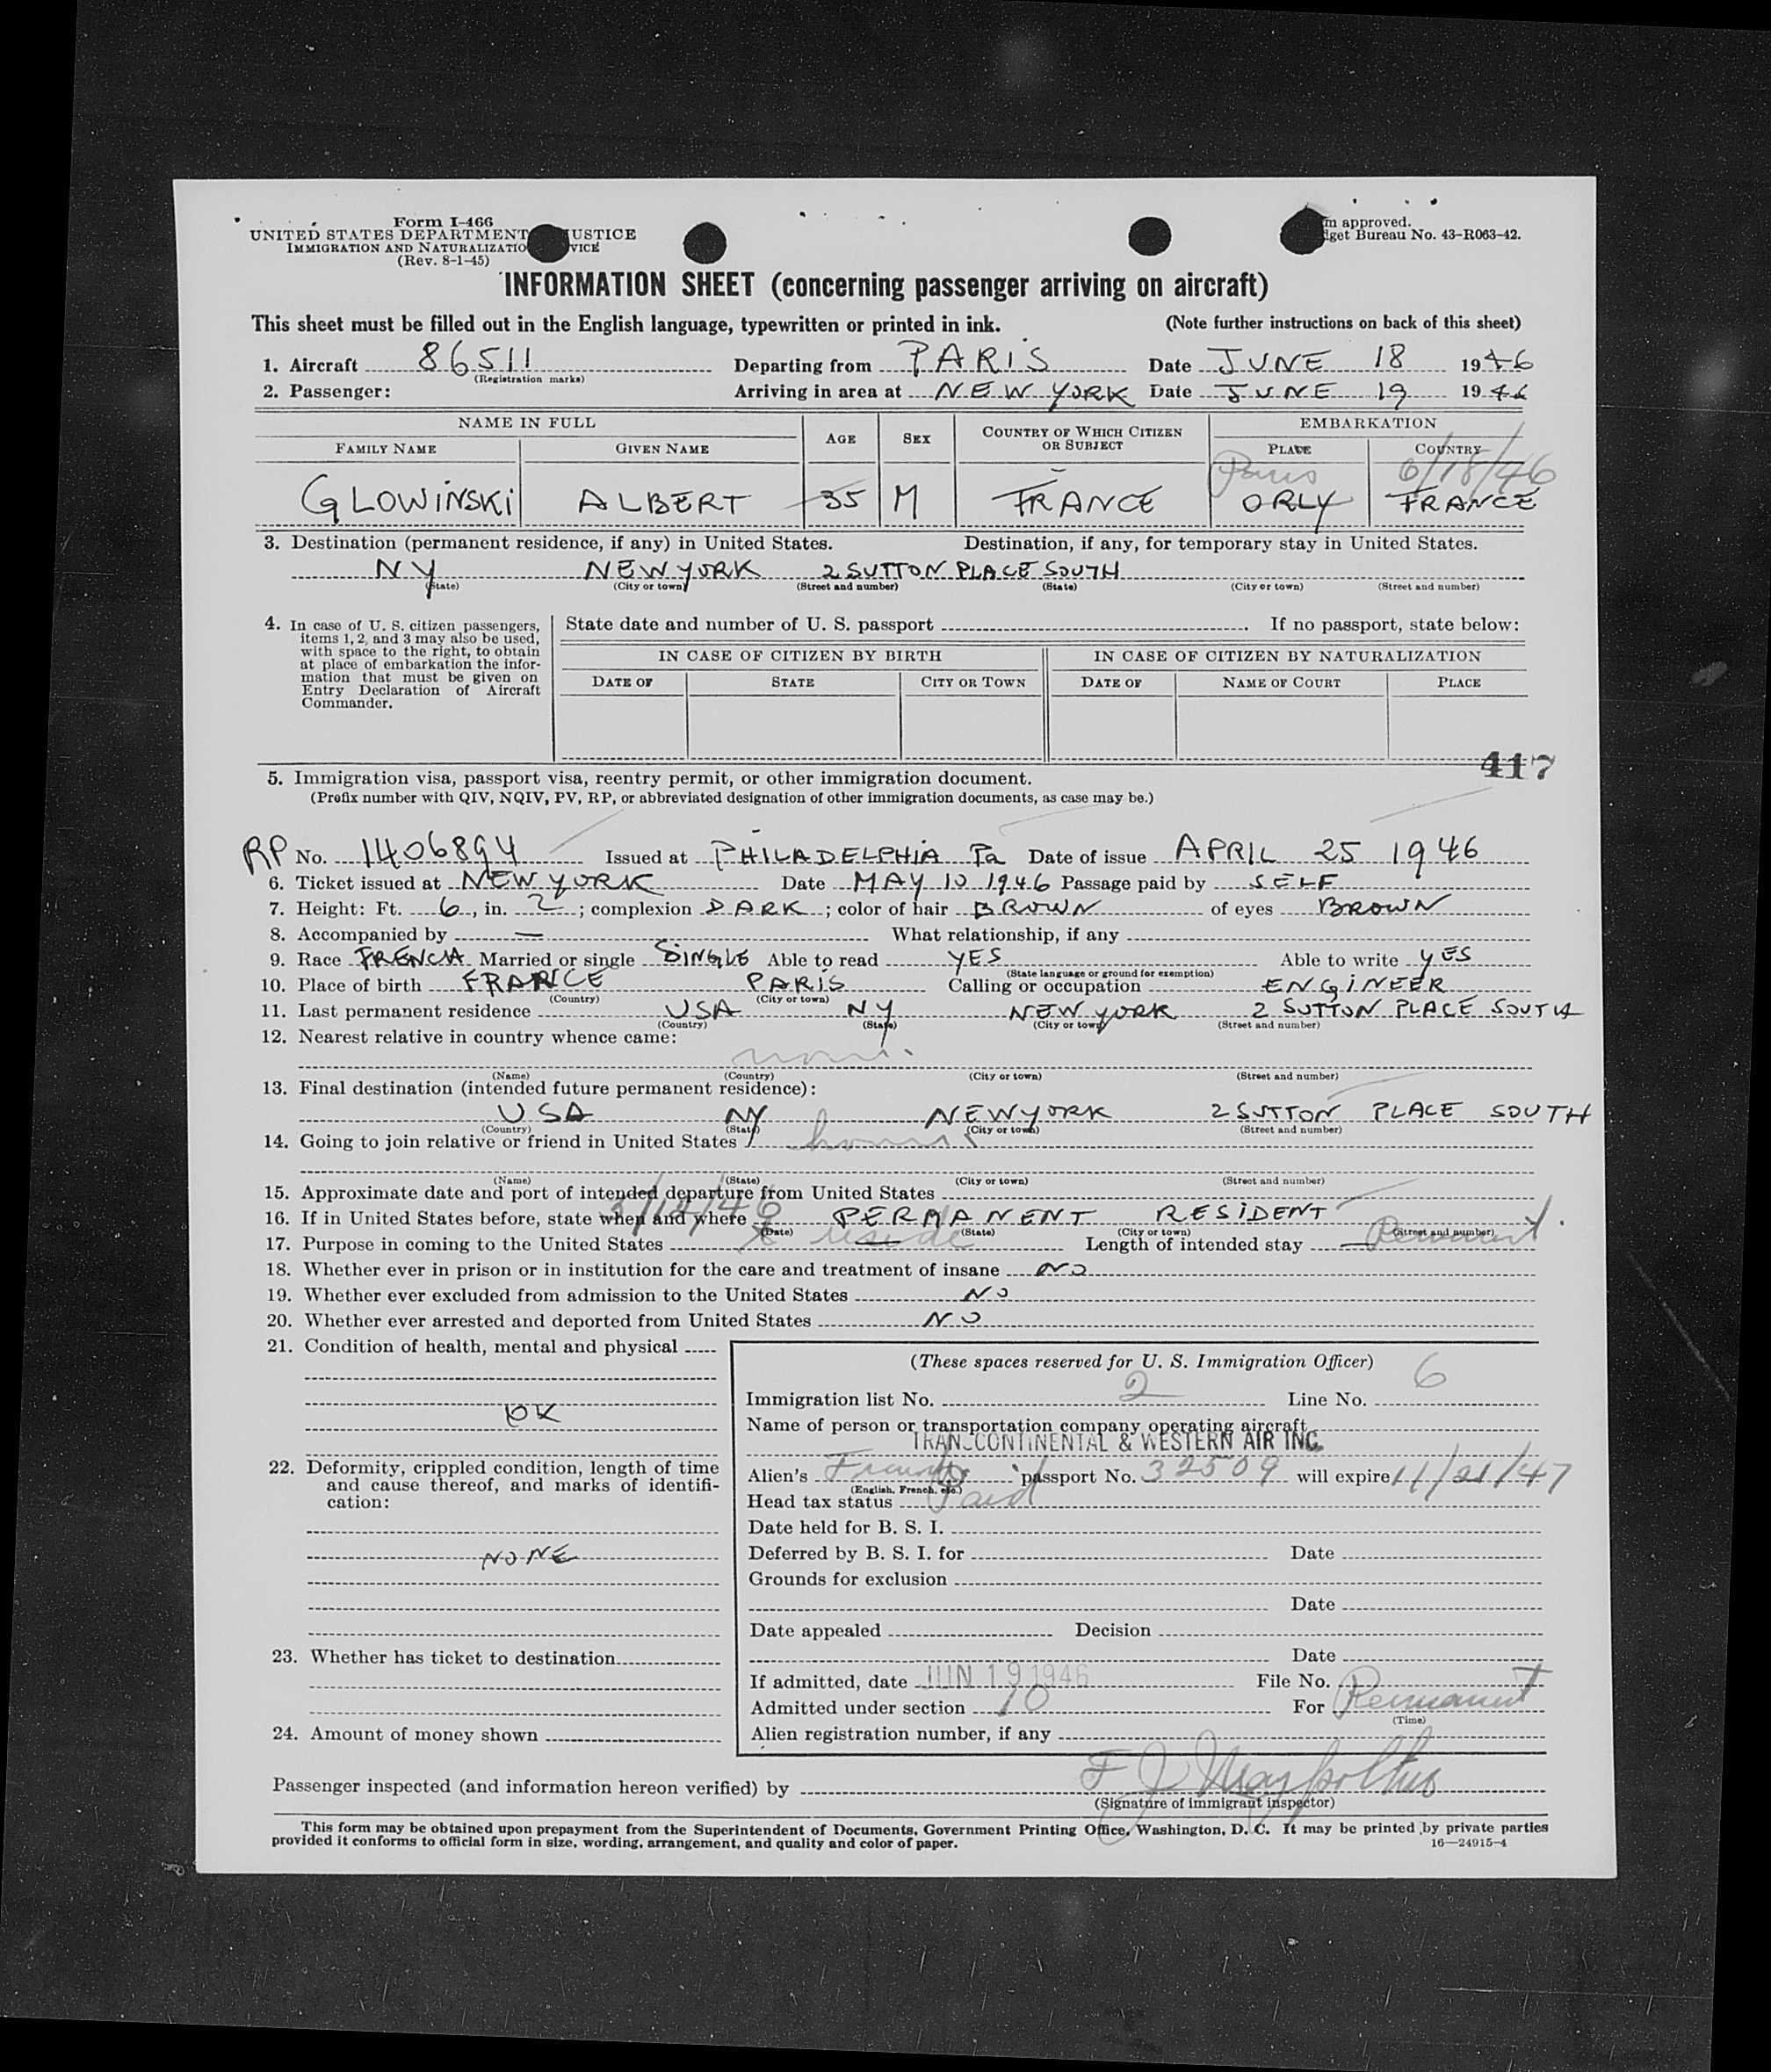 Form I-466
UNITED STATES DEPARTMENT JUSTICE
IMMIGRATION AND NATURALIZATIO VICE
(Rev. 8-1-45)
m approved.
dget Bureau No. 43-R063-42.
INFORMATION SHEET (concerning passenger arriving on aircraft)
This sheet must be filled out in the English language, typewritten or printed in ink. (Note further instructions on back of this sheet)
1. Aircraft 86511 Departing from PARIS Date JUNE 18 1946
(Registration marks)
2. Passenger: Arriving in area at NEW YORK Date JUNE 19 1946
NAME IN FULL AGE SEX COUNTRY OF WHICH CITIZEN OR SUBJECT EMBARKATION
FAMILY NAME GIVEN NAME PLACE COUNTRY
Paris 6/18/46
GLOWINSKI ALBERT 35 M FRANCE ORLY FRANCE
3. Destination (permanent residence, if any) in United States. Destination, if any, for temporary stay in United States.
NY NEW YORK 2 SUTTON PLACE SOUTH
(State) (City or town) (Street and number) (State) (City or town) (Street and number)
4. In case of U. S. citizen passengers,
items 1, 2, and 3 may also be used,
with space to the right, to obtain
at place of embarkation the infor-
mation that must be given on
Entry Declaration of Aircraft
Commander.
State date and number of U. S. passport . If no passport, state below:
IN CASE OF CITIZEN BY BIRTH IN CASE OF CITIZEN BY NATURALIZATION
DATE OF STATE CITY OR TOWN DATE OF NAME OF COURT PLACE
417
5. Immigration visa, passport visa, reentry permit, or other immigration document.
(Prefix number with QIV, NQIV, PV, RP, or abbreviated designation of other immigration documents, as case may be.)
RP No. 1406894 Issued at PHILADELPHIA Pa Date of issue APRIL 25 1946
6. Ticket issued at NEW YORK Date MAY 10 1946 Passage paid by SELF
7. Height: Ft. 6, in. 2; complexion DARK; color of hair BROWN of eyes BROWN
8. Accompanied by — What relationship, if any
9. Race FRENCH Married or single SINGLE Able to read YES Able to write YES
(State language or ground for exemption)
10. Place of birth FRANCE PARIS Calling or occupation ENGINEER
(Country) (City or town)
11. Last permanent residence USA NY NEW YORK 2 SUTTON PLACE SOUTH
(Country) (State) (City or town) (Street and number)
12. Nearest relative in country whence came:
none
(Name) (Country) (City or town) (Street and number)
13. Final destination (intended future permanent residence):
USA NY NEW YORK 2 SUTTON PLACE SOUTH
(Country) (State) (City or town) (Street and number)
14. Going to join relative or friend in United States
(Name) (State) (City or town) (Street and number)
15. Approximate date and port of intended departure from United States
16. If in United States before, state when and where 5/12/46 PERMANENT RESIDENT
(Date) (State) (City or town) (Street and number)
17. Purpose in coming to the United States to reside Length of intended stay Permanent
18. Whether ever in prison or in institution for the care and treatment of insane NO
19. Whether ever excluded from admission to the United States NO
20. Whether ever arrested and deported from United States NO
21. Condition of health, mental and physical
OK
22. Deformity, crippled condition, length of time
and cause thereof, and marks of identifi-
cation:
NONE
23. Whether has ticket to destination
24. Amount of money shown
(These spaces reserved for U. S. Immigration Officer)
Immigration list No. 2 Line No. 6
Name of person or transportation company operating aircraft
TRANSCONTINENTAL & WESTERN AIR INC.
Alien's French passport No. 32509 will expire 11/21/47
(English, French, etc.)
Head tax status Paid
Date held for B. S. I.
Deferred by B. S. I. for Date
Grounds for exclusion
Date
Date appealed Decision
Date
If admitted, date JUN 19 1946 File No.
Admitted under section 10 For Permanent
(Time)
Alien registration number, if any
Passenger inspected (and information hereon verified) by
(Signature of immigrant inspector)
This form may be obtained upon prepayment from the Superintendent of Documents, Government Printing Office, Washington, D. C. It may be printed by private parties
provided it conforms to official form in size, wording, arrangement, and quality and color of paper.
16—24915-4